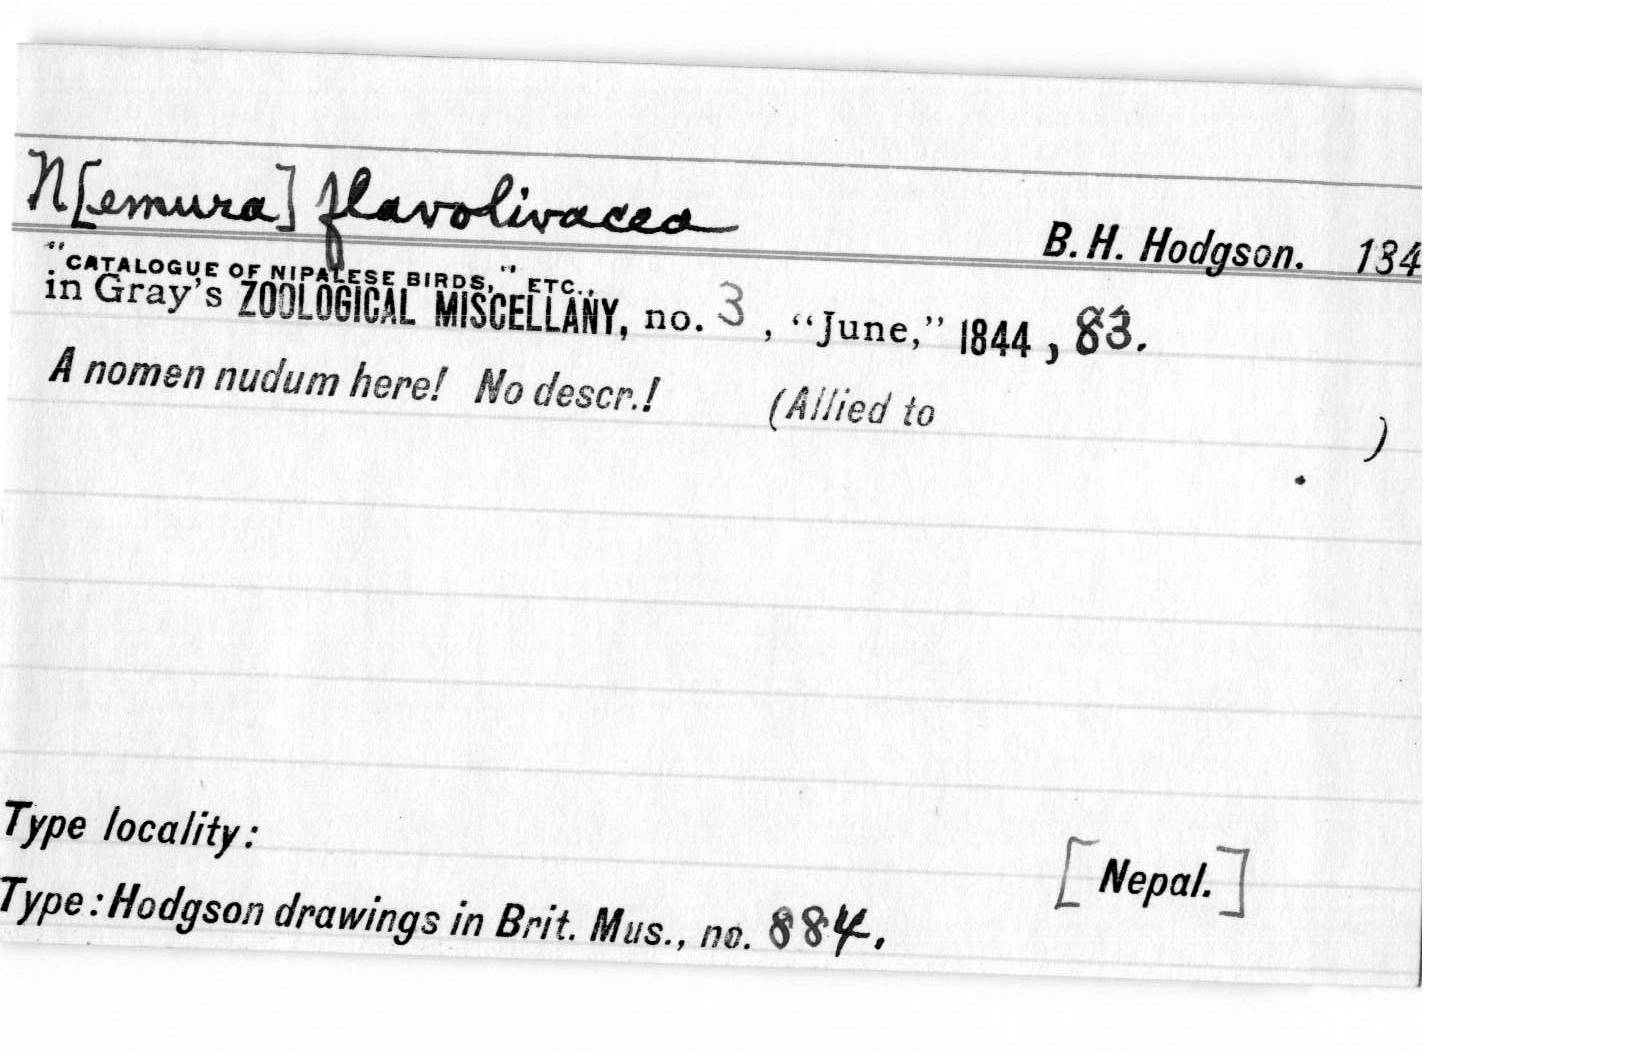 N[emura] flavolivacea
B. H. Hodgson. 184
"CATALOGUE OF NIPALESE BIRDS," ETC.,
in Gray's ZOOLOGICAL MISCELLANY, no. 3, "June," 1844, 83.
A nomen nudum here! No descr.! (Allied to )
.
Type locality: [Nepal.]
Type: Hodgson drawings in Brit. Mus., no. 884.